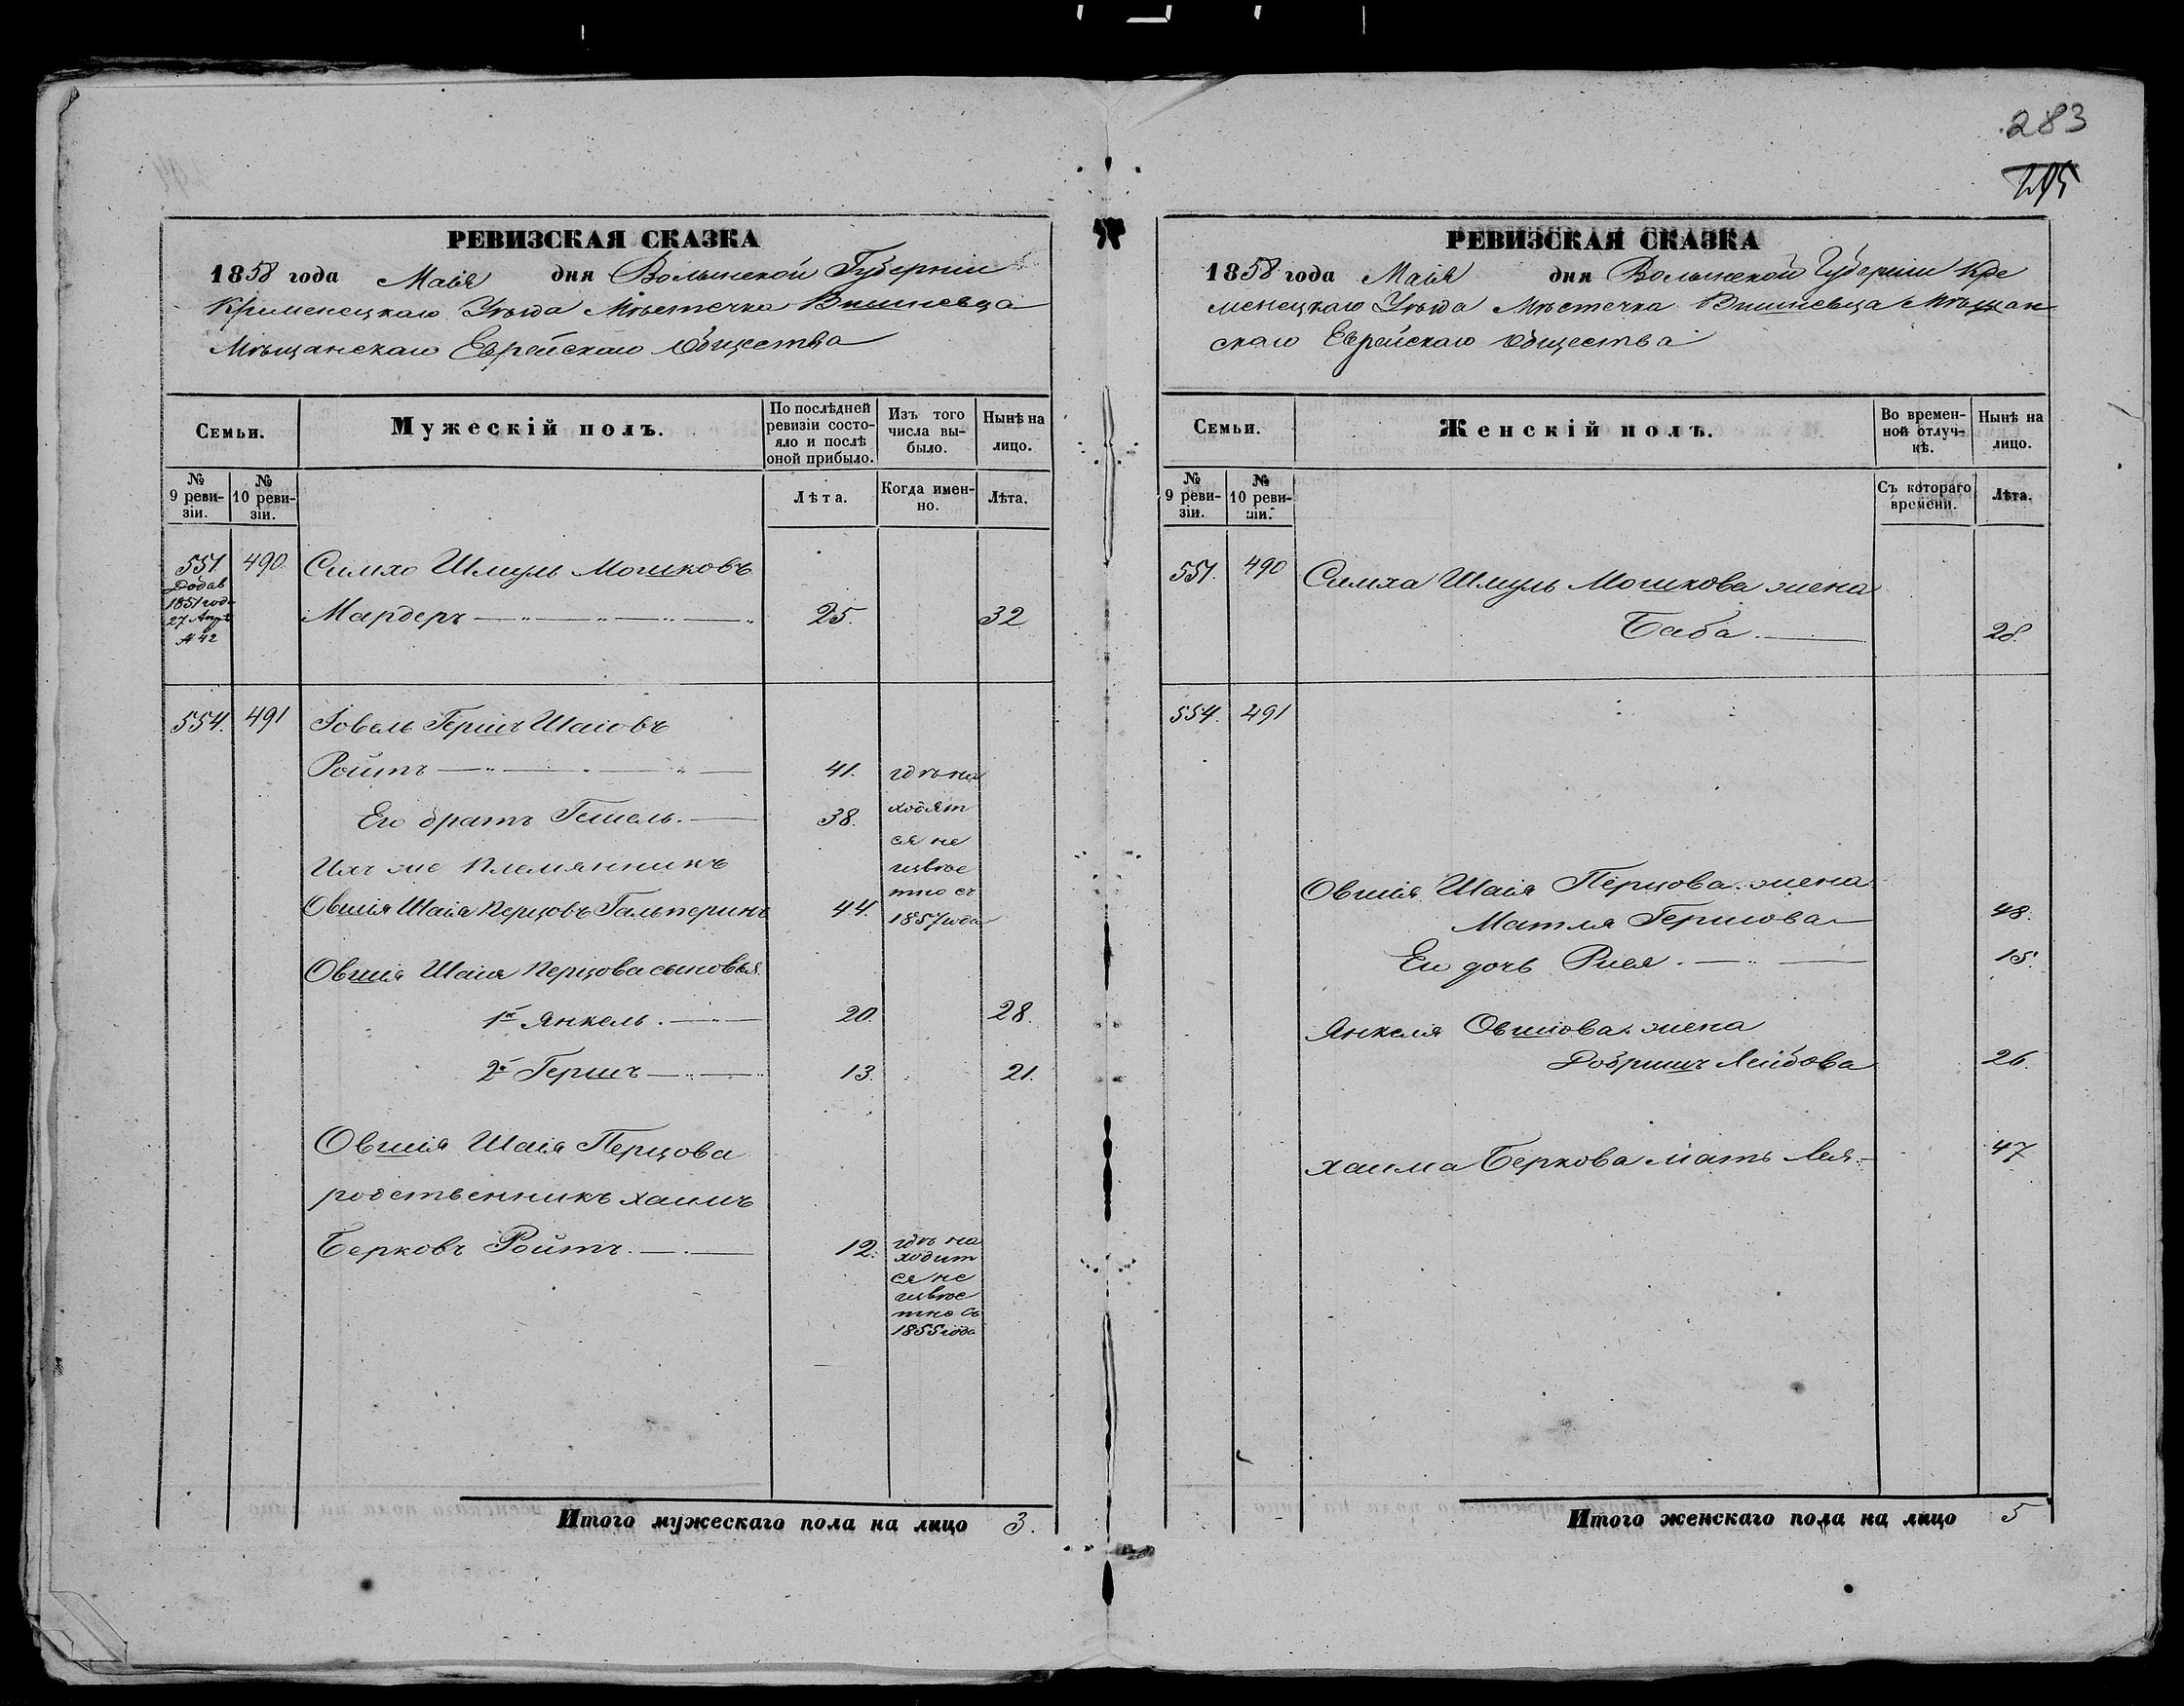 283
295
РЕВИЗСКАЯ СКАЗКА
1858 года Маія дня Волынской Губерніи
Кременецкаго Уѣзда Мѣстечка Вишневца
Мѣщанскаго Еврейскаго Общества
Семьи.
Мужескій полъ.
По послѣдней ревизіи состояло и послѣ оной прибыло.
Изъ того числа выбыло.
Нынѣ на лицо.
№ 9 ревизіи.
№ 10 ревизіи.
Лѣта.
Когда именно.
Лѣта.
551. 490. Симхо Шмуль Мошковъ
Додав
1851 год
27 Апр
№ 42
Мардеръ 25. 32
554. 491 Іовель Гершъ Шаіовъ
Ройтъ 41. гдѣ на
Его братъ Гешель. 38. ходят
ся не
Ихъ же племянникъ извѣс
тно съ
Овшія Шаія Перцовъ Гальперинъ 44. 1857 года
Овшія Шаія Перцова сыновья
1й Янкель. 20. 28.
2й Гершъ 13. 21.
Овшія Шаія Перцова
родственникъ хаимъ
Берковъ Ройтъ. 12. гдѣ на
ходит
ся не
извѣс
тно съ
1855 года
Итого мужескаго пола на лицо 3.
РЕВИЗСКАЯ СКАЗКА
1858 года Маія дня Волынской Губерніи Кре
менецкаго Уѣзда Мѣстечка Вишневца Мѣщан
скаго Еврейскаго Общества
Семьи.
Женскій полъ.
Во временной отлучкѣ.
Нынѣ на лицо.
№ 9 ревизіи.
№ 10 ревизіи.
Съ котораго времени.
Лѣта.
551. 490 Симха Шмуль Мошкова жена
Баба. 28.
554. 491
Овшія Шаія Перцова жена
Матля Гершова 48.
Его дочь Рися. 15.
Янкеля Овшіова жена
Добришъ Лейбова 26.
хаима Беркова мать Лея 47
Итого женскаго пола на лицо 5